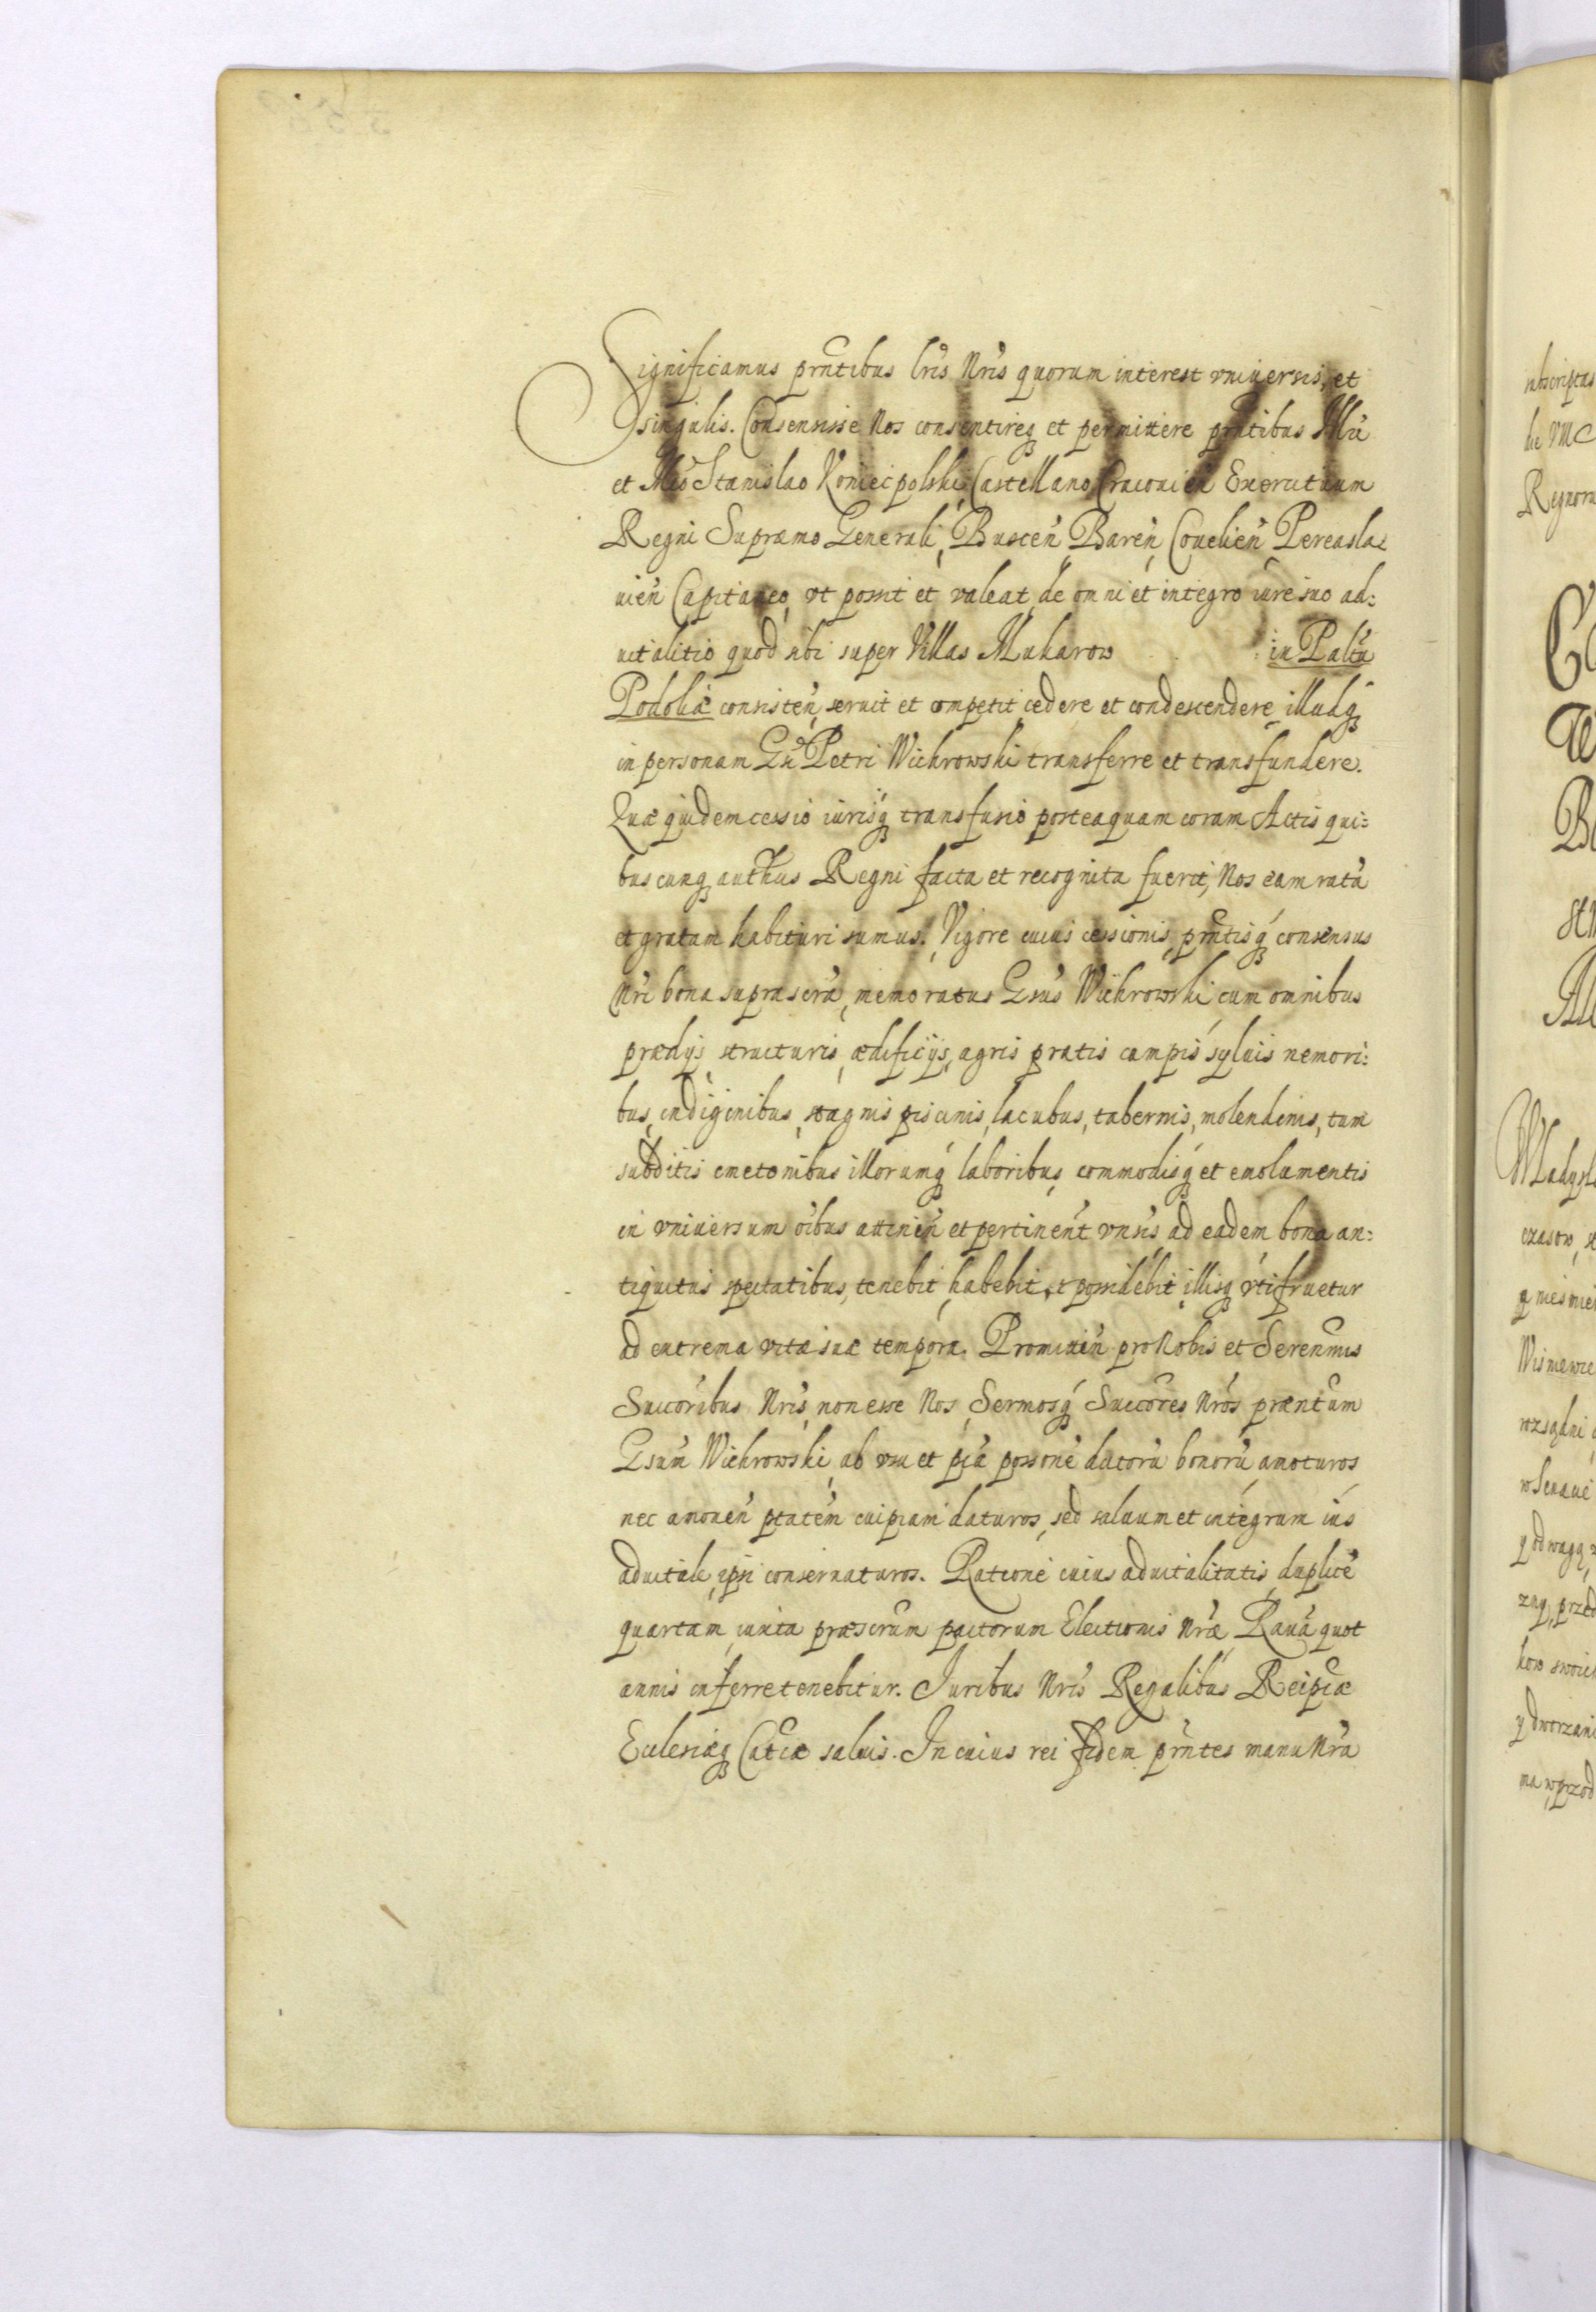 Significamus prntibus lris Nris quorum interest vniuersis, et
singulis. Consensisse Nos consentireq et permittere pntibus Illri
et Mco Stanislao Koniecpolski, Castellano Cracouien Exercituum
Regni Supremo Generali, Buscen, Baren, Couelien, Pereasla:
uien Capitaneo, vt possit et valeat de omni et integro iure suo ad:
uitalitio quod sibi super Villas Mukarow in Paltu
Podoliæ consisten, seruit et competit, cedere et condescendere illudq
in personam Gn Petri Wichrowski transferre et transfundere.
Quæ quidem cessio iurisq transfusio posteaquam coram Actis qui:
buscunq authus Regni facta et recognita fuerit, Nos eam ratã
et gratam habituri sumus. Vigore cuius cessionis, prntisq consensus
Nri bona suprascra, memoratus Gsus Wichrowski cum omnibus
prædijs, structuris, ædificijs, agris pratis campis syluis nemori:
bus, indiginibus, stagnis piscinis, lacubus, tabernis, molendinis, tum
subditis cmetonibus illorumq laboribus, commodisq et emolumentis
in vniuersum oibus attinen et pertinent vnsis ad eadem bona an:
tiquitus spectatibus, tenebit, habebit, et possidebit, illisq vtifruetur
ad extrema vitæ suæ tempora. Promitten pro Nobis et Serenmis
Succoribus Nris, non esse Nos, Sermosq Succores Nros præntum
Gsum Wichrowski, ab vsu et pcã possone dictorũ bonorũ amoturos
nec amouen ptatem cuipiam daturos, sed saluum et integrum ius
aduitale, ipsi conseruaturos. Ratione cuius aduitalitatis, duplicẽ
quartam, iuxta præscrum pactorum Electionis Nræ Rauã quot
annis inferre tenebitur. Juribus Nris Regalibus Reipcæ
Ecclesiæq Catcæ saluis. In cuius rei fidem prntes manu Nra